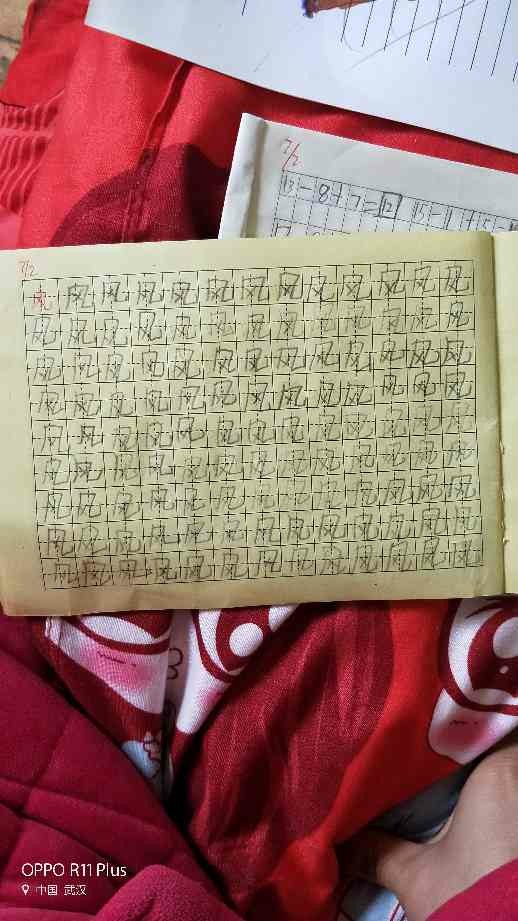 7/2
13-8+7=12
7/2
风风风风风风风风风风风风风
风风风风风风风风风风风风风
风风风风风风风风风风风风风
风风风风风风风风风风风风风
风风风风风风风风风风风风风
风风风风风风风风风风风风风
风风风风风风风风风风风风风
风风风风风风风风风风风风风
风风风风风风风风风风风风风
OPPO R11 Plus
中国 武汉